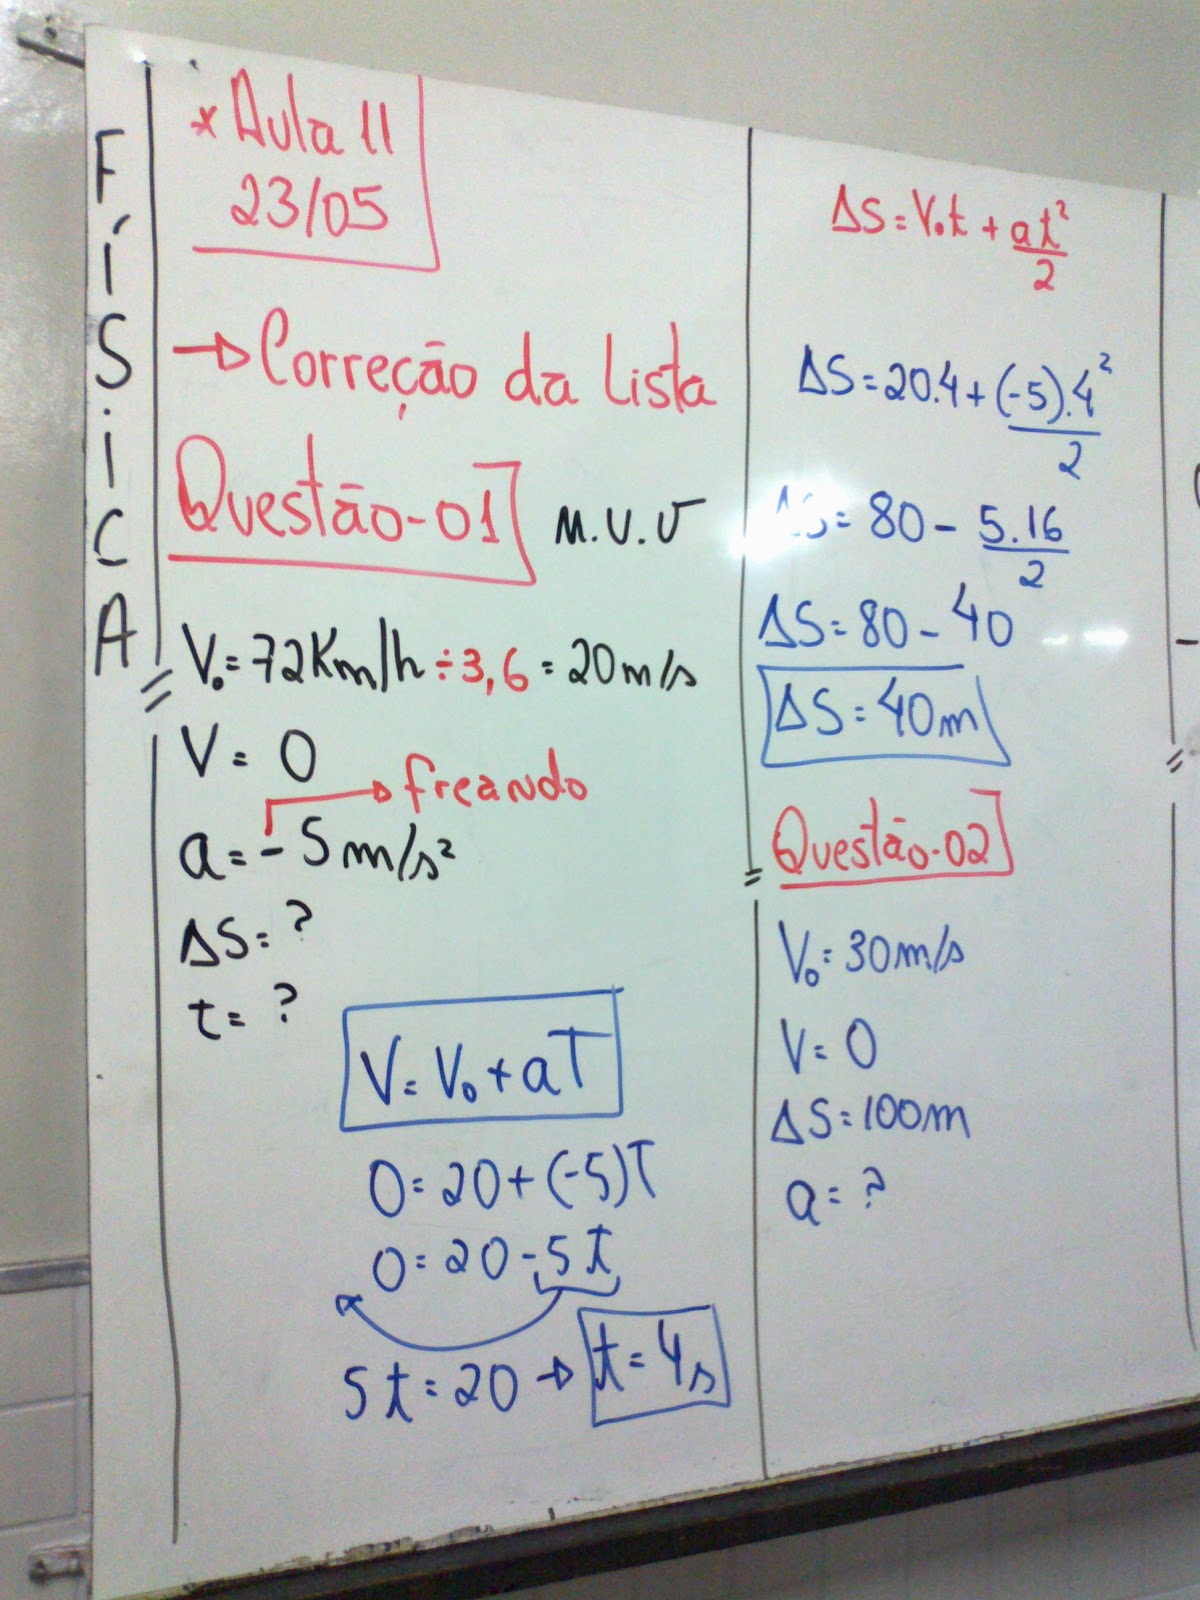 FÍSiCA
* Aula 11
23/05
→ Correção da Lista
Questão-01 M.V.U
V₀=72Km/h ÷3,6 = 20m/s
V= 0
→ freando
a=-5m/s²
ΔS=?
t= ?
V=V₀+aT
0=20+(-5)T
0=20-5t
5t=20 → t=4s
ΔS=V₀t + at²/2
ΔS=20.4+(-5).4²/2
ΔS=80-5.16/2
ΔS=80-40
ΔS=40m
Questão-02
V₀=30m/s
V=0
ΔS=100m
a=?